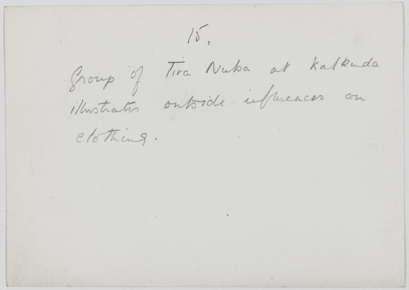 15.
Group of Tira Nuba at Kalkada
illustrates outside influences on
clothing.